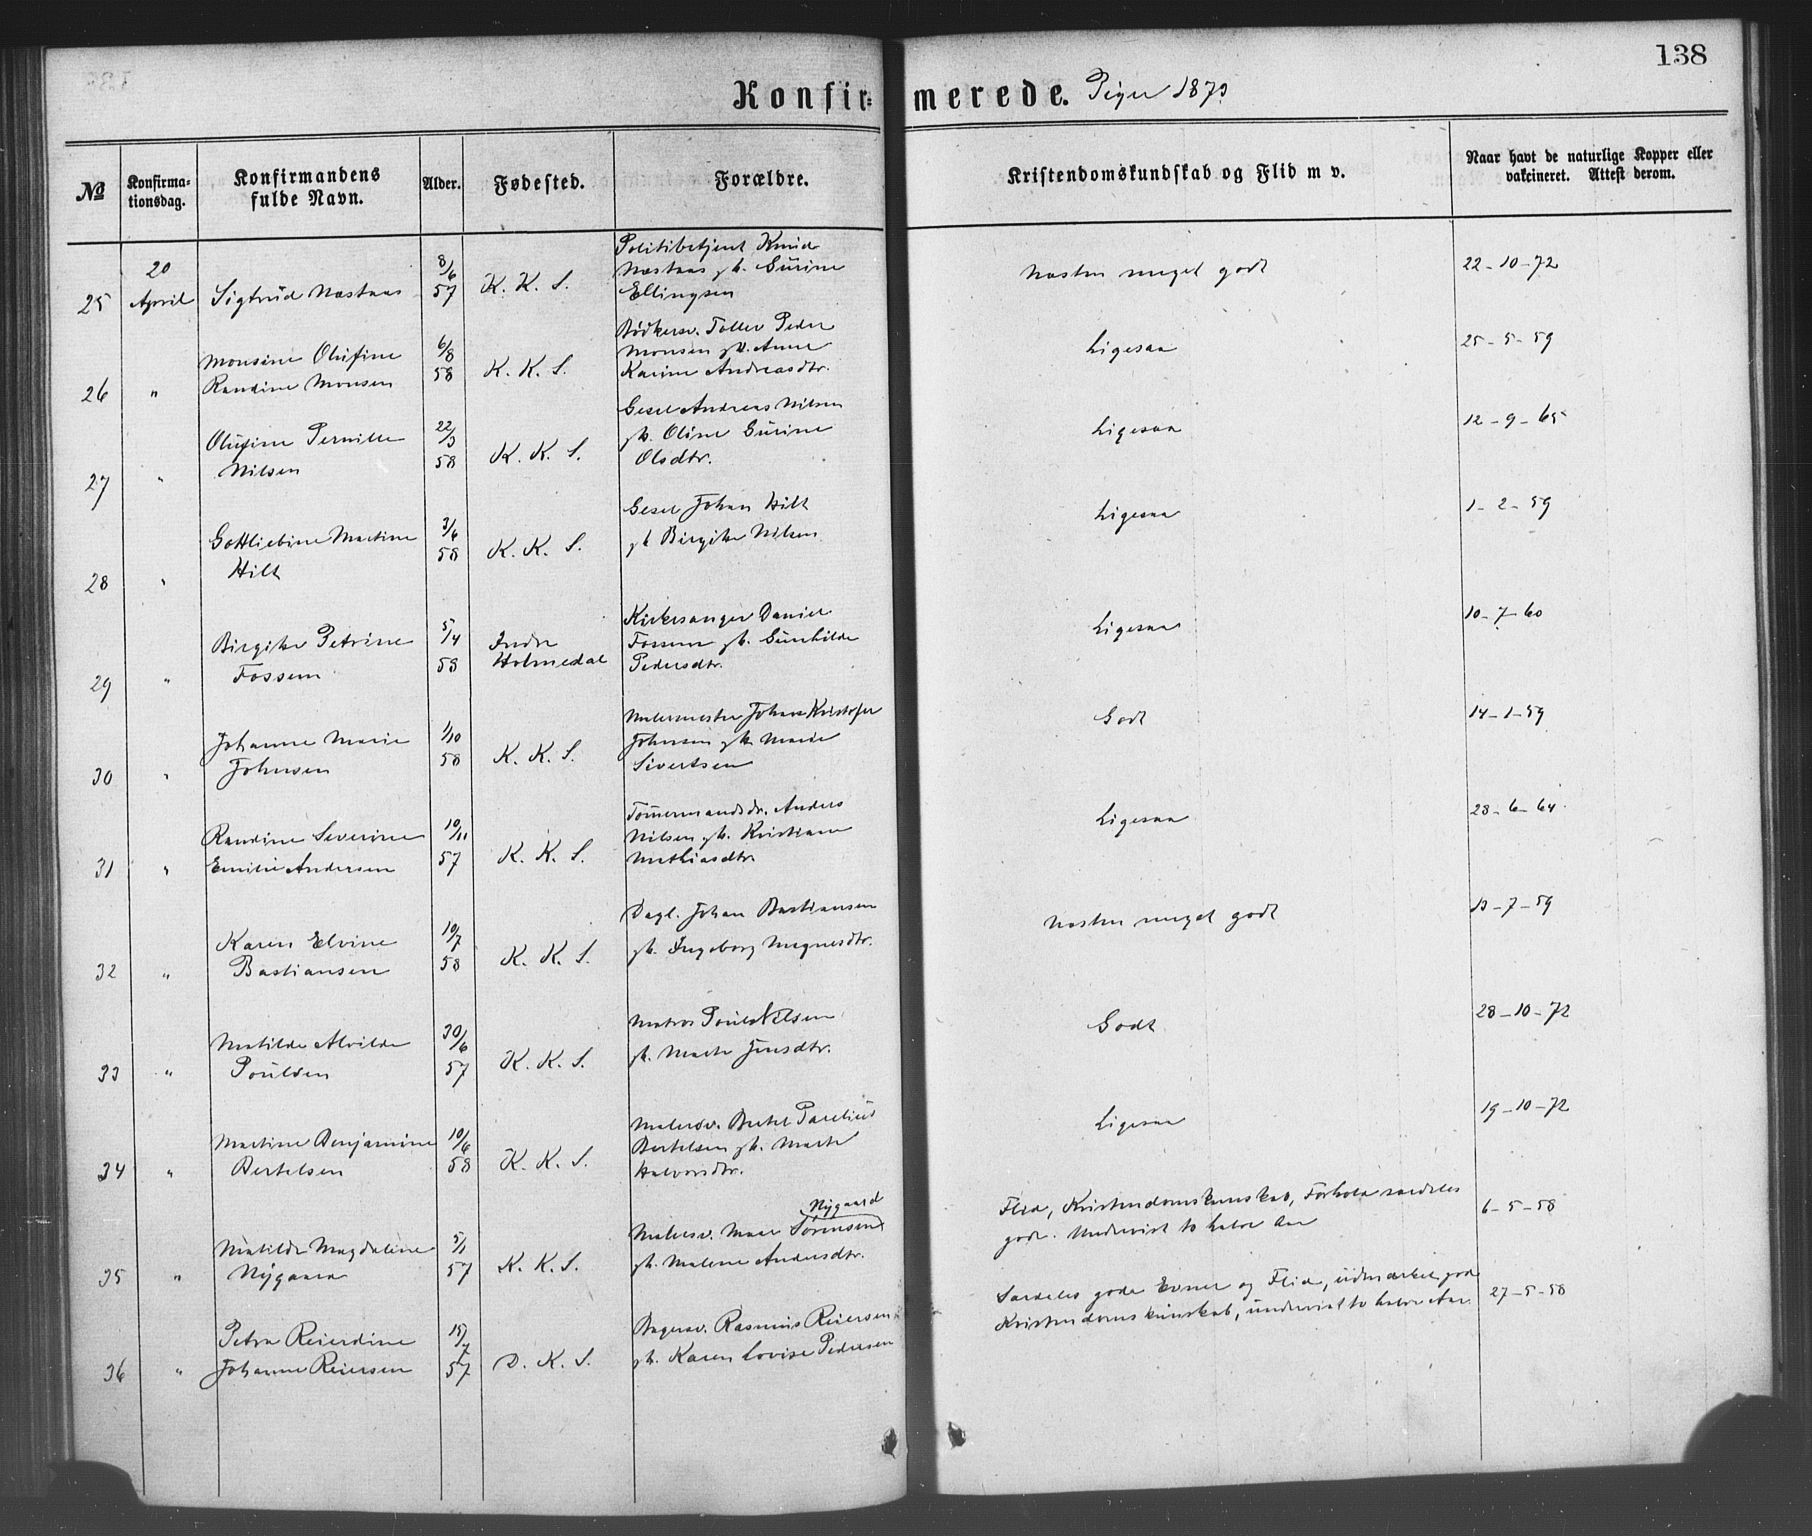 138
Konfirmerede. Piger 1873
№
Konfirma-
tionsdag.
Konfirmandens
fulde Navn.
Alder.
Fødested.
Forældre.
Kristendomskundskab og Flid m v.
Naar havt de naturlige Kopper eller
vakcineret. Attest derom.
25
20
April
Sigtrud Næstaas
8/6
57
K. K. S.
Politibetjent Knud
Næstaas gb. Gurine
Ellingsen
Næsten meget godt
22-10-72
26
"
Monsine Olufine
Randine Monsen
6/8
58
K. K. S.
Bödkersv. Tollev Peder
Monsen gb. Anne
Karine Andreasdtr.
Ligesaa
25-5-59
27
"
Olufine Pernille
Nilsen
22/3
58
K. K. S.
Gesel Andreas Nilsen
gb. Oline Gurine
Olsdtr.
Ligesaa
12-9-65
28
"
Gottliebine Martine
Hilt
3/6
58
K. K. S.
Gesel Johan Hilt
gb Birgithe Nilsen
Ligesaa
1-2-59
29
"
Birgithe Petrine
Fossem
5/4
58
Indre
Holmedal
Kirkesanger Daniel
Fossem gb. Gunhilde
Pedersdtr.
Ligesaa
10-7-60
30
"
Johanne Marie
Johnsen
1/10
58
K. K. S.
Malermester Johan Kristofer
Johnsen gb. Marie
Sivertsen
Godt
14-1-59
31
"
Randine Severine
Emilie Andersen
10/11
57
K. K. S.
Tömermandsdr. Anders
Nilsen gb. Kristiane
Mathiasdtr.
Ligesaa
28-6-64
32
"
Karen Elvine
Bastiansen
10/7
58
K. K. S.
Dagl. Johan Bastiansen
gb. Ingeborg Magnesdtr.
Næsten meget godt
13-7-59
33
"
Matilde Alvilde
Poulsen
30/6
57
K. K. S.
Matros Poul Nilsen
gb. Marte Jensdtr.
Godt
28-10-72
34
"
Martine Benjamine
Bertelsen
10/6
58
K. K. S.
Malersv. Bertel Parelius
Bertelsen gb. Marte
Halvorsdtr.
Ligesaa
19-10-72
35
"
Matilde Magdaline
Nygaard
5/1
57
K. K. S.
Nygaard
Malersv. Sörensen
gb. Malene Andersdtr.
Flid, Kristendomskunskab, Forhold særdeles
gode. Undervist to halve Aar
6-5-58
36
"
Petra Reierdine
Johanne Reiersen
15/7
57
D. K. S.
Bagersv. Rasmus Reiersen
gb. Karen Lovise Pedersen
Særdeles gode Evner og Flid, udmærket god
Kristendomskunskab, undervist to halve Aar.
27-5-58